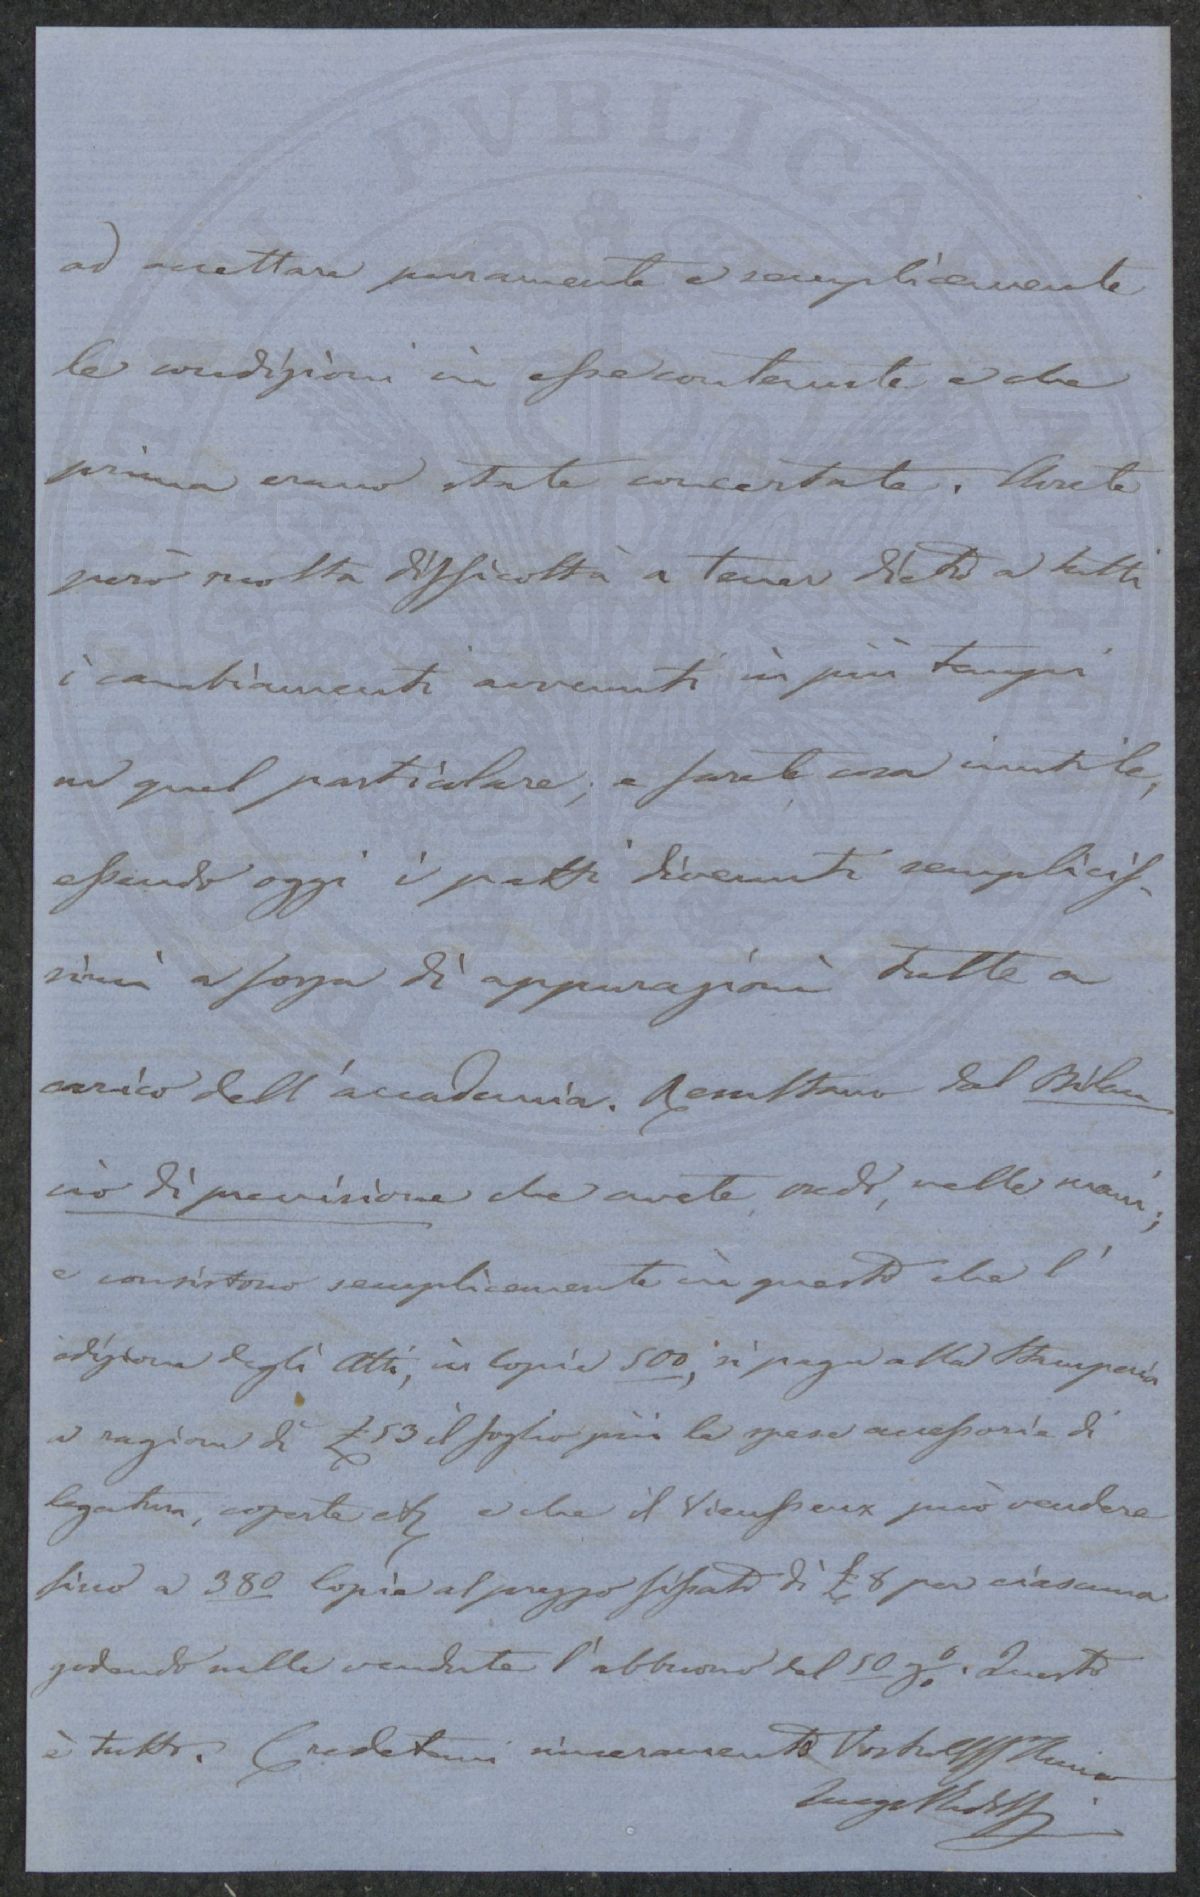 ad accettare puramente e semplicemente
le condizioni in esse contenute e che
prima erano state concertate. Avrete
però molta difficoltà a tener dietro a tutti
i cambiamenti avvenuti in più tempi
in quel particolare; e farete cosa inutile,
essendo oggi i patti divenuti semplicis-
simi a forza di appurazioni tutte a
carico dell'accademia. Resultano dal Bilan
cio di previsione che avete, credo, nelle mani;
e consistono semplicemente in questo che l'
edizione degli Atti, in Copie 500, si paga alla Stamperia
a ragione di £ 53 il foglio più le spese accessorie di
legatura, coperte etc e che il Vieusseux può vendere
fino a 380 Copie al prezzo fissato di £ 8 per ciascuna
godendo nelle vendute l'abbuono del 50 %. Questo
è tutto. Credetemi sinceramente Vostro
Luigi Ridolfi
PUBLICA